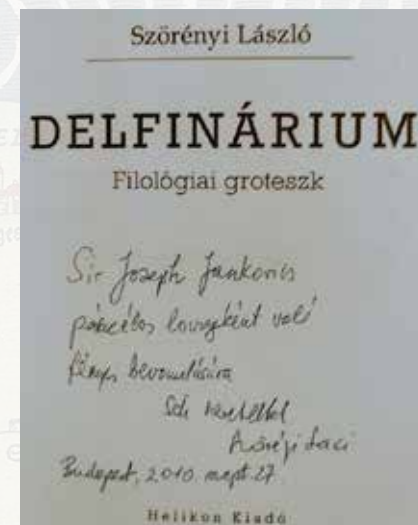 Szörényi László
DELFINÁRIUM
Filológiai groteszk
Sir Joseph Jankovics
páncélos lovagként való
fényes bevonulására
Sok szeretettel
Laci
Budapest, 2010. szept. 27.
Helikon Kiadó